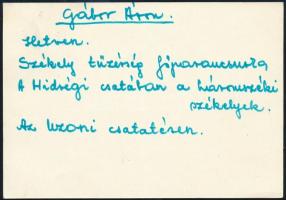 Gábor Áron.
Hetven.
Székely tüzérség főparancsnoka
A Hidvégi csatában a háromszéki
székelyek.
Az uzoni csatatéren.